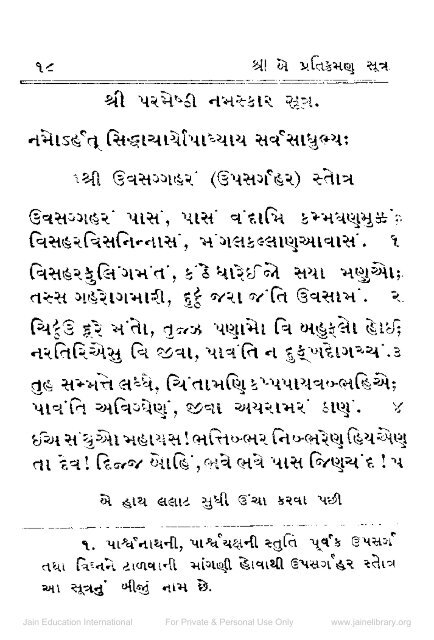 ૧૮ શ્રી બે પ્રતિક્રમણ સૂત્ર
શ્રી પરમેષ્ઠી નમસ્કાર સૂત્ર.
નમોઽર્હત્ સિદ્ધાચાર્યોપાધ્યાય સર્વસાધુભ્યઃ
૧શ્રી ઉવસગ્ગહરં (ઉપસર્ગહર) સ્તોત્ર
ઉવસગ્ગહરં પાસં, પાસં વંદામિ કમ્મઘણમુક્કં;
વિસહરવિસનિન્નાસં, મંગલકલ્લાણઆવાસં. ૧
વિસહરફુલિંગમંતં, કંઠે ધારેઈજો સયા મણુઓ;
તસ્સ ગહરોગમારી, દુટ્ઠ જરા જંતિ ઉવસામં. ૨
ચિટ્ઠઉ દૂરે મંતો, તુજ્ઝ પણામો વિ બહુફલો હોઈ;
નરતિરિએસુ વિ જીવા, પાવંતિ ન દુક્ખદોગચ્ચં.૩
તુહ સમ્મત્તે લધ્ધે, ચિંતામણિ કપ્પપાયવબ્ભહિએ;
પાવંતિ અવિગ્ઘેણં, જીવા અયરામરં ઠાણં. ૪
ઈઅ સંથુઓ મહાયસ! ભત્તિબ્ભર નિબ્ભરેણ હિયએણ
તા દેવ! દિજ્જ બોહિં, ભવે ભવે પાસ જિણચંદ! ૫
બે હાથ લલાટ સુધી ઉંચા કરવા પછી
૧. પાર્શ્વનાથની, પાર્શ્વયક્ષની સ્તુતિ પૂર્વક ઉપસર્ગ
તથા વિઘ્નને ટાળવાની માંગણી હોવાથી ઉપસર્ગહર સ્તોત્ર
આ સૂત્રનું બીજું નામ છે.
Jain Education International For Private & Personal Use Only www.jainelibrary.org